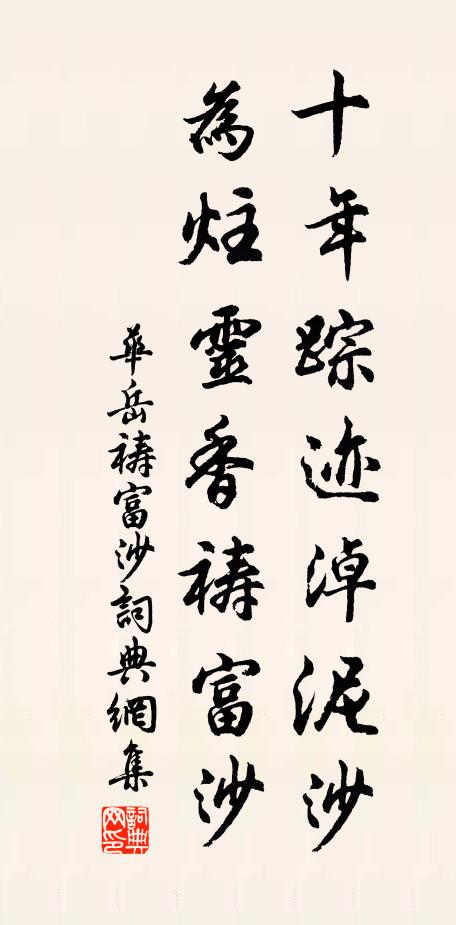 十年踪迹淖泥沙
為炷靈香祷富沙
華岳祷富沙詞典網集
詞典网印